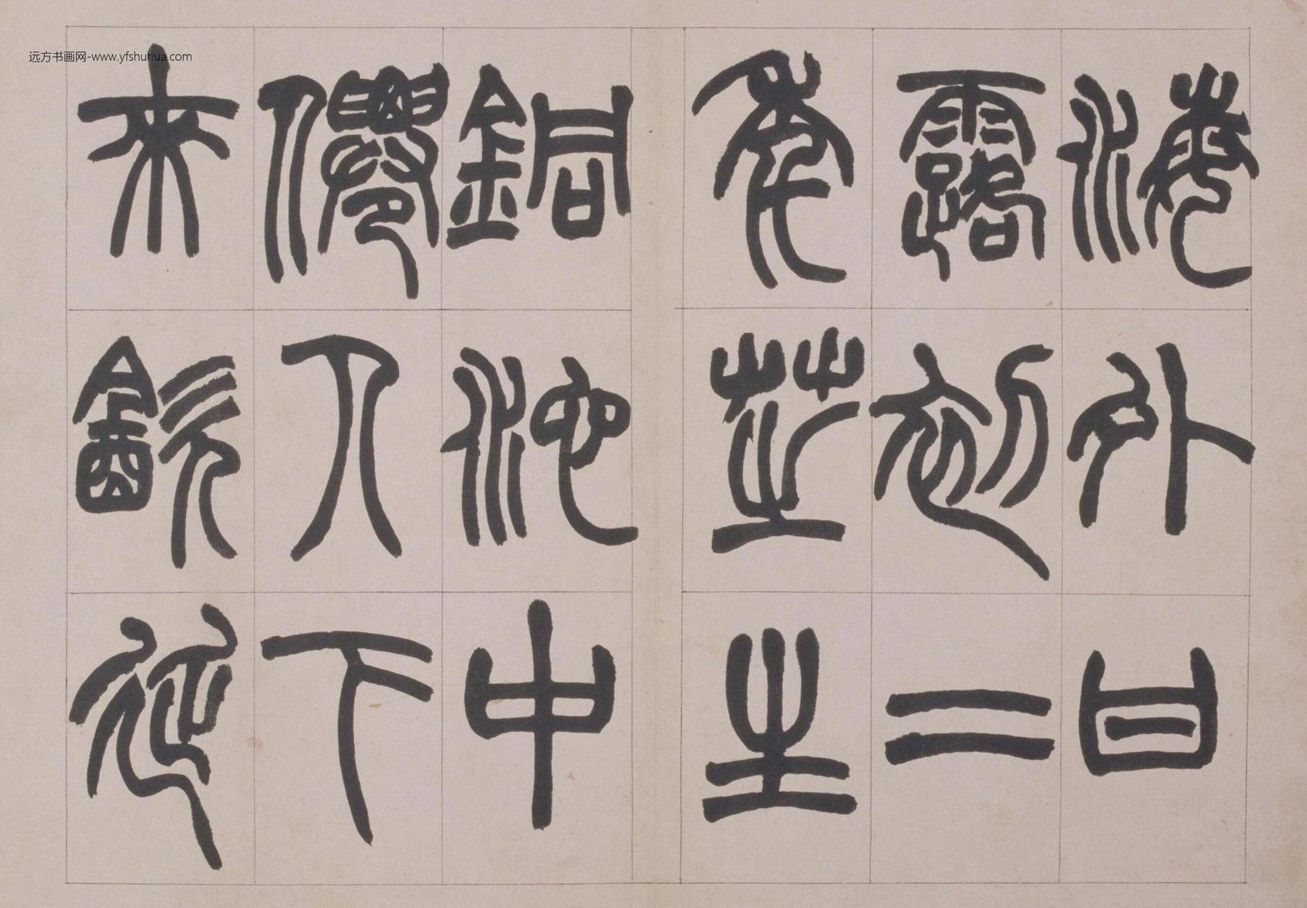 远方书画网-www.yfshuhua.com
海外甘
露初二
年芝生
銅池中
僊人下
來飲延